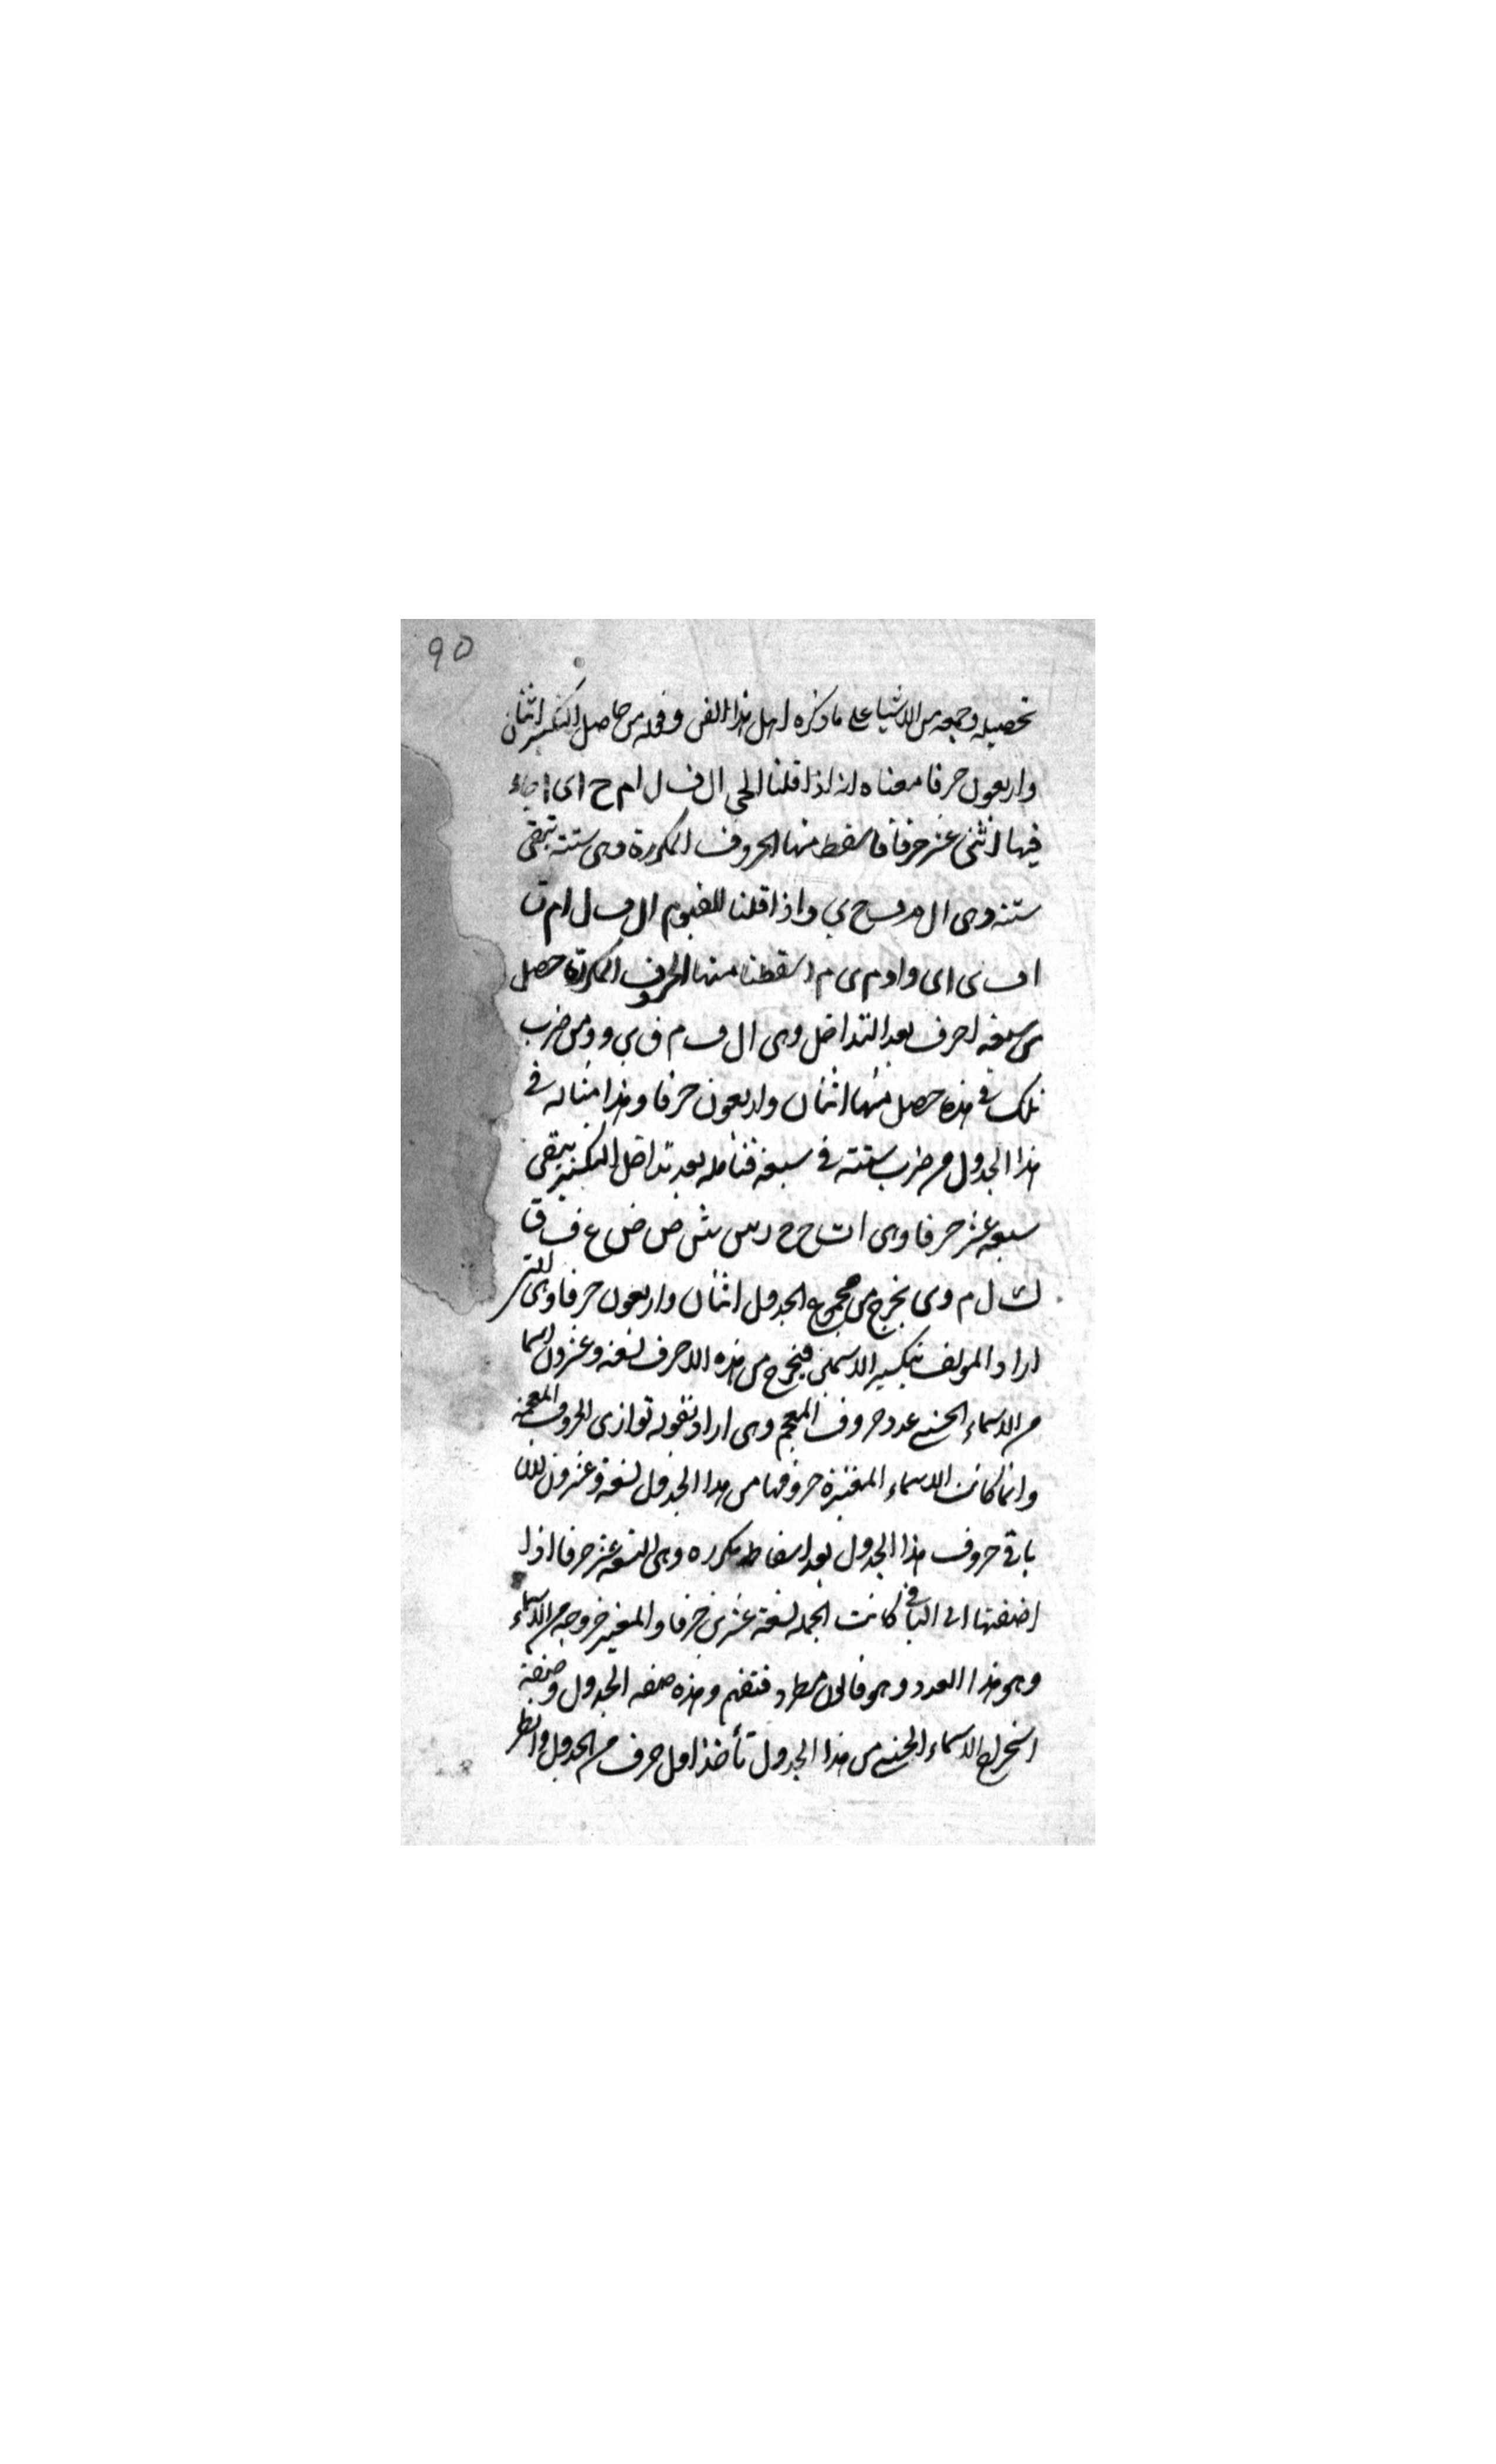 90
تحصيله وجمعه من الاشيا على ما ذكره اهل هذا الفن وقوله من حاصل التكسير اثنان
واربعون حرفا معناه انه اذا قلنا الحي ال ف ل ام ح اى ا
فيها اثنى عشر حرفا فاسقط منها الحروف المكررة وهى ستة تبقى
ستة وهى ال م ف ح ي واذا قلنا القيوم ال ف ل ام ق
اف ى اى واوم ى م اسقطنا منها الحروف المكررة حصل
من سبعة احرف بعد التداخل وهى ال ف م ق ي و ومن ضرب
تلك فى هذه حصل منها اثنان واربعون حرفا وهذا مثاله فى
هذا الجدول من ضرب ستة فى سبعة فتأمله بعد تداخل التكسير يبقى
سبعة عشر حرفا وهى ا ت ح ح د س ش ص ض ع ف ق
ك ل م وى يخرج من مجموع الجدول اثنان واربعون حرفا وهى التى
اراد المولف بتكسير الاسمين فيخرج من هذه الاحرف تسعة وعشرون اسما
من الاسماء الحسنى عدد حروف المعجم وهى اراد بقوله توازى الحروف المعجمة
وانما كانت الاسماء المعتبرة حروفها من هذا الجدول تسعة وعشرون لان
باقى حروف هذا الجدول بعد اسقاط مكرره وهى التسعة عشر حرفا اذا
اضفتها الى الباقى كانت الجملة تسعة عشرين حرفا والمعتبر خروجه من الاسماء
وهو هذا العدد وهو قانون مطرد فتفهم وهذه صفة الجدول وصفة
استخراج الاسماء الحسنى من هذا الجدول تأخذ اول حرف من الجدول وانظر